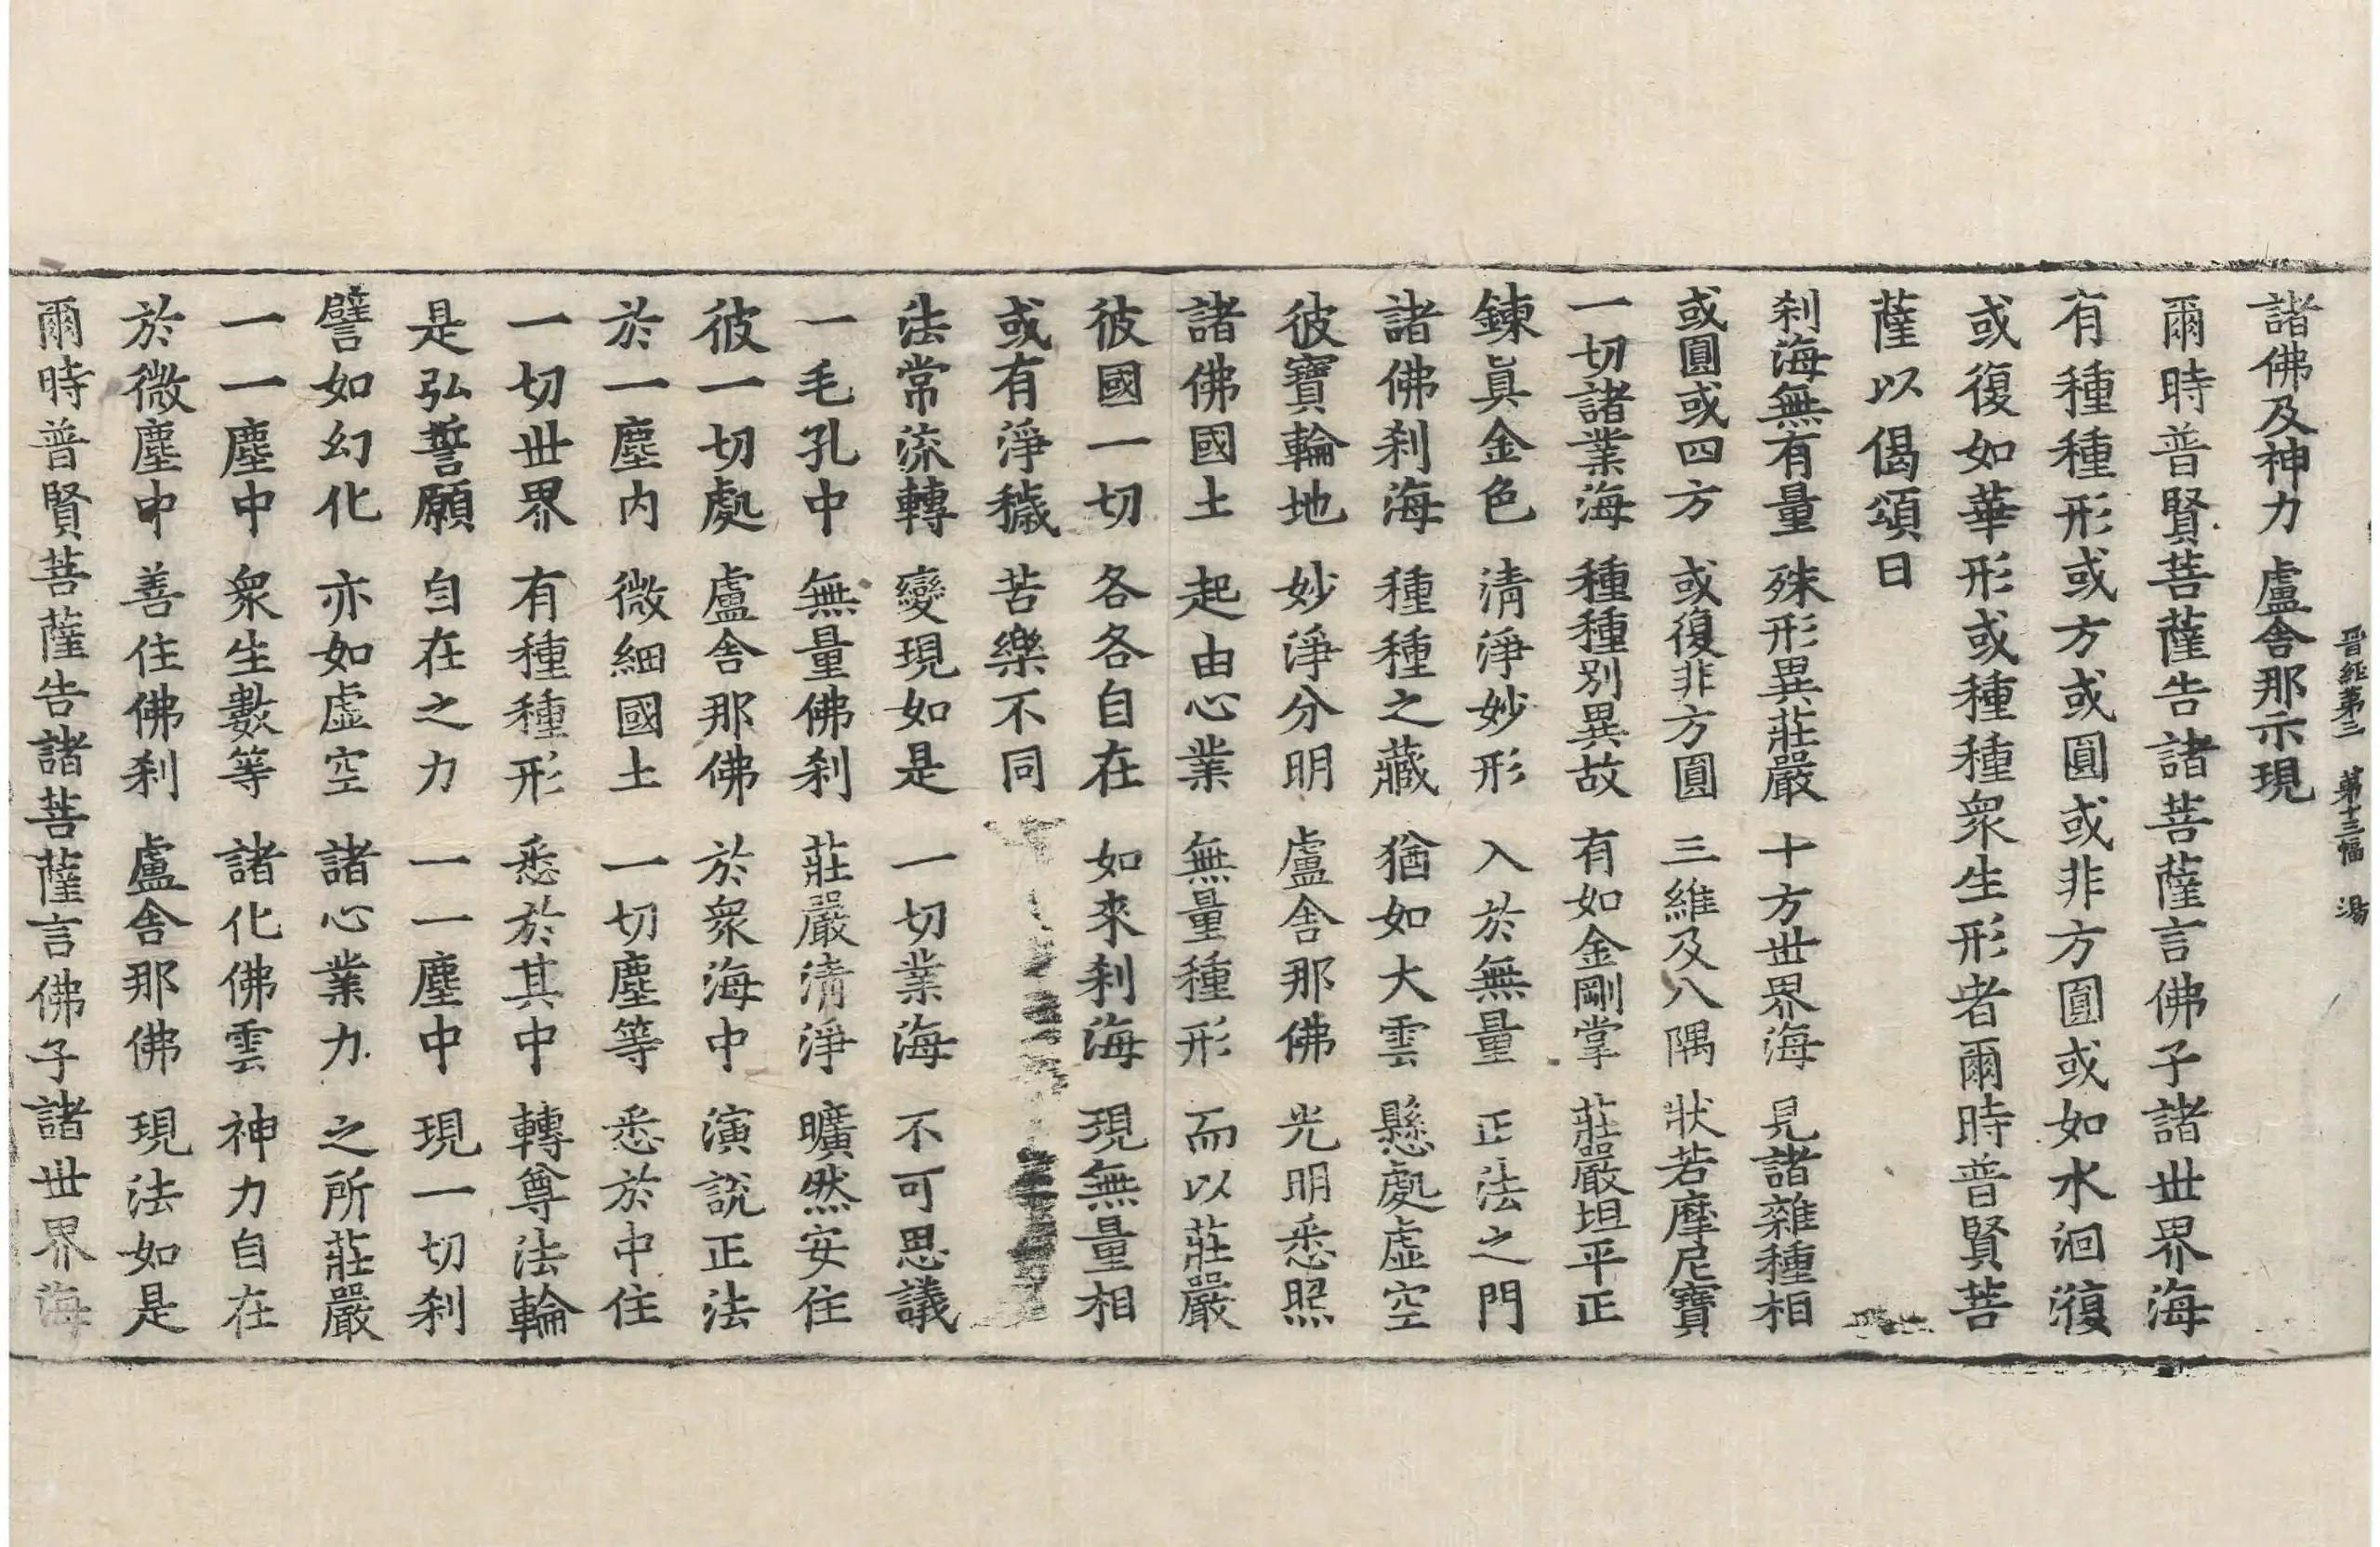 晋經第三 第十三幅 湯
諸佛及神力 盧舎那示現
爾時普賢菩薩告諸菩薩言佛子諸世界海
有種種形或方或圓或非方圓或如水洄澓
或復如華形或種種衆生形者爾時普賢菩
薩以偈頌曰
刹海無有量 殊形異莊嚴 十方世界海 見諸雜種相
或圓或四方 或復非方圓 三維及八隅 狀若摩尼寶
一切諸業海 種種別異故 有如金剛掌 莊嚴坦平正
鍊眞金色 清淨妙形 入於無量 正法之門
諸佛刹海 種種之藏 猶如大雲 懸處虚空
彼寶輪地 妙淨分明 盧舎那佛 光明悉照
諸佛國土 起由心業 無量種形 而以莊嚴
彼國一切 各各自在 如來刹海 現無量相
或有淨穢 苦樂不同
法常流轉 變現如是 一切業海 不可思議
一毛孔中 無量佛刹 莊嚴清淨 曠然安住
彼一切處 盧舎那佛 於衆海中 演説正法
於一塵内 微細國土 一切塵等 悉於中住
一切世界 有種種形 悉於其中 轉尊法輪
是弘誓願 自在之力 一一塵中 現一切刹
譬如幻化 亦如虚空 諸心業力 之所莊嚴
一一塵中 衆生數等 諸化佛雲 神力自在
於微塵中 善住佛刹 盧舎那佛 現法如是
爾時普賢菩薩告諸菩薩言佛子諸世界海